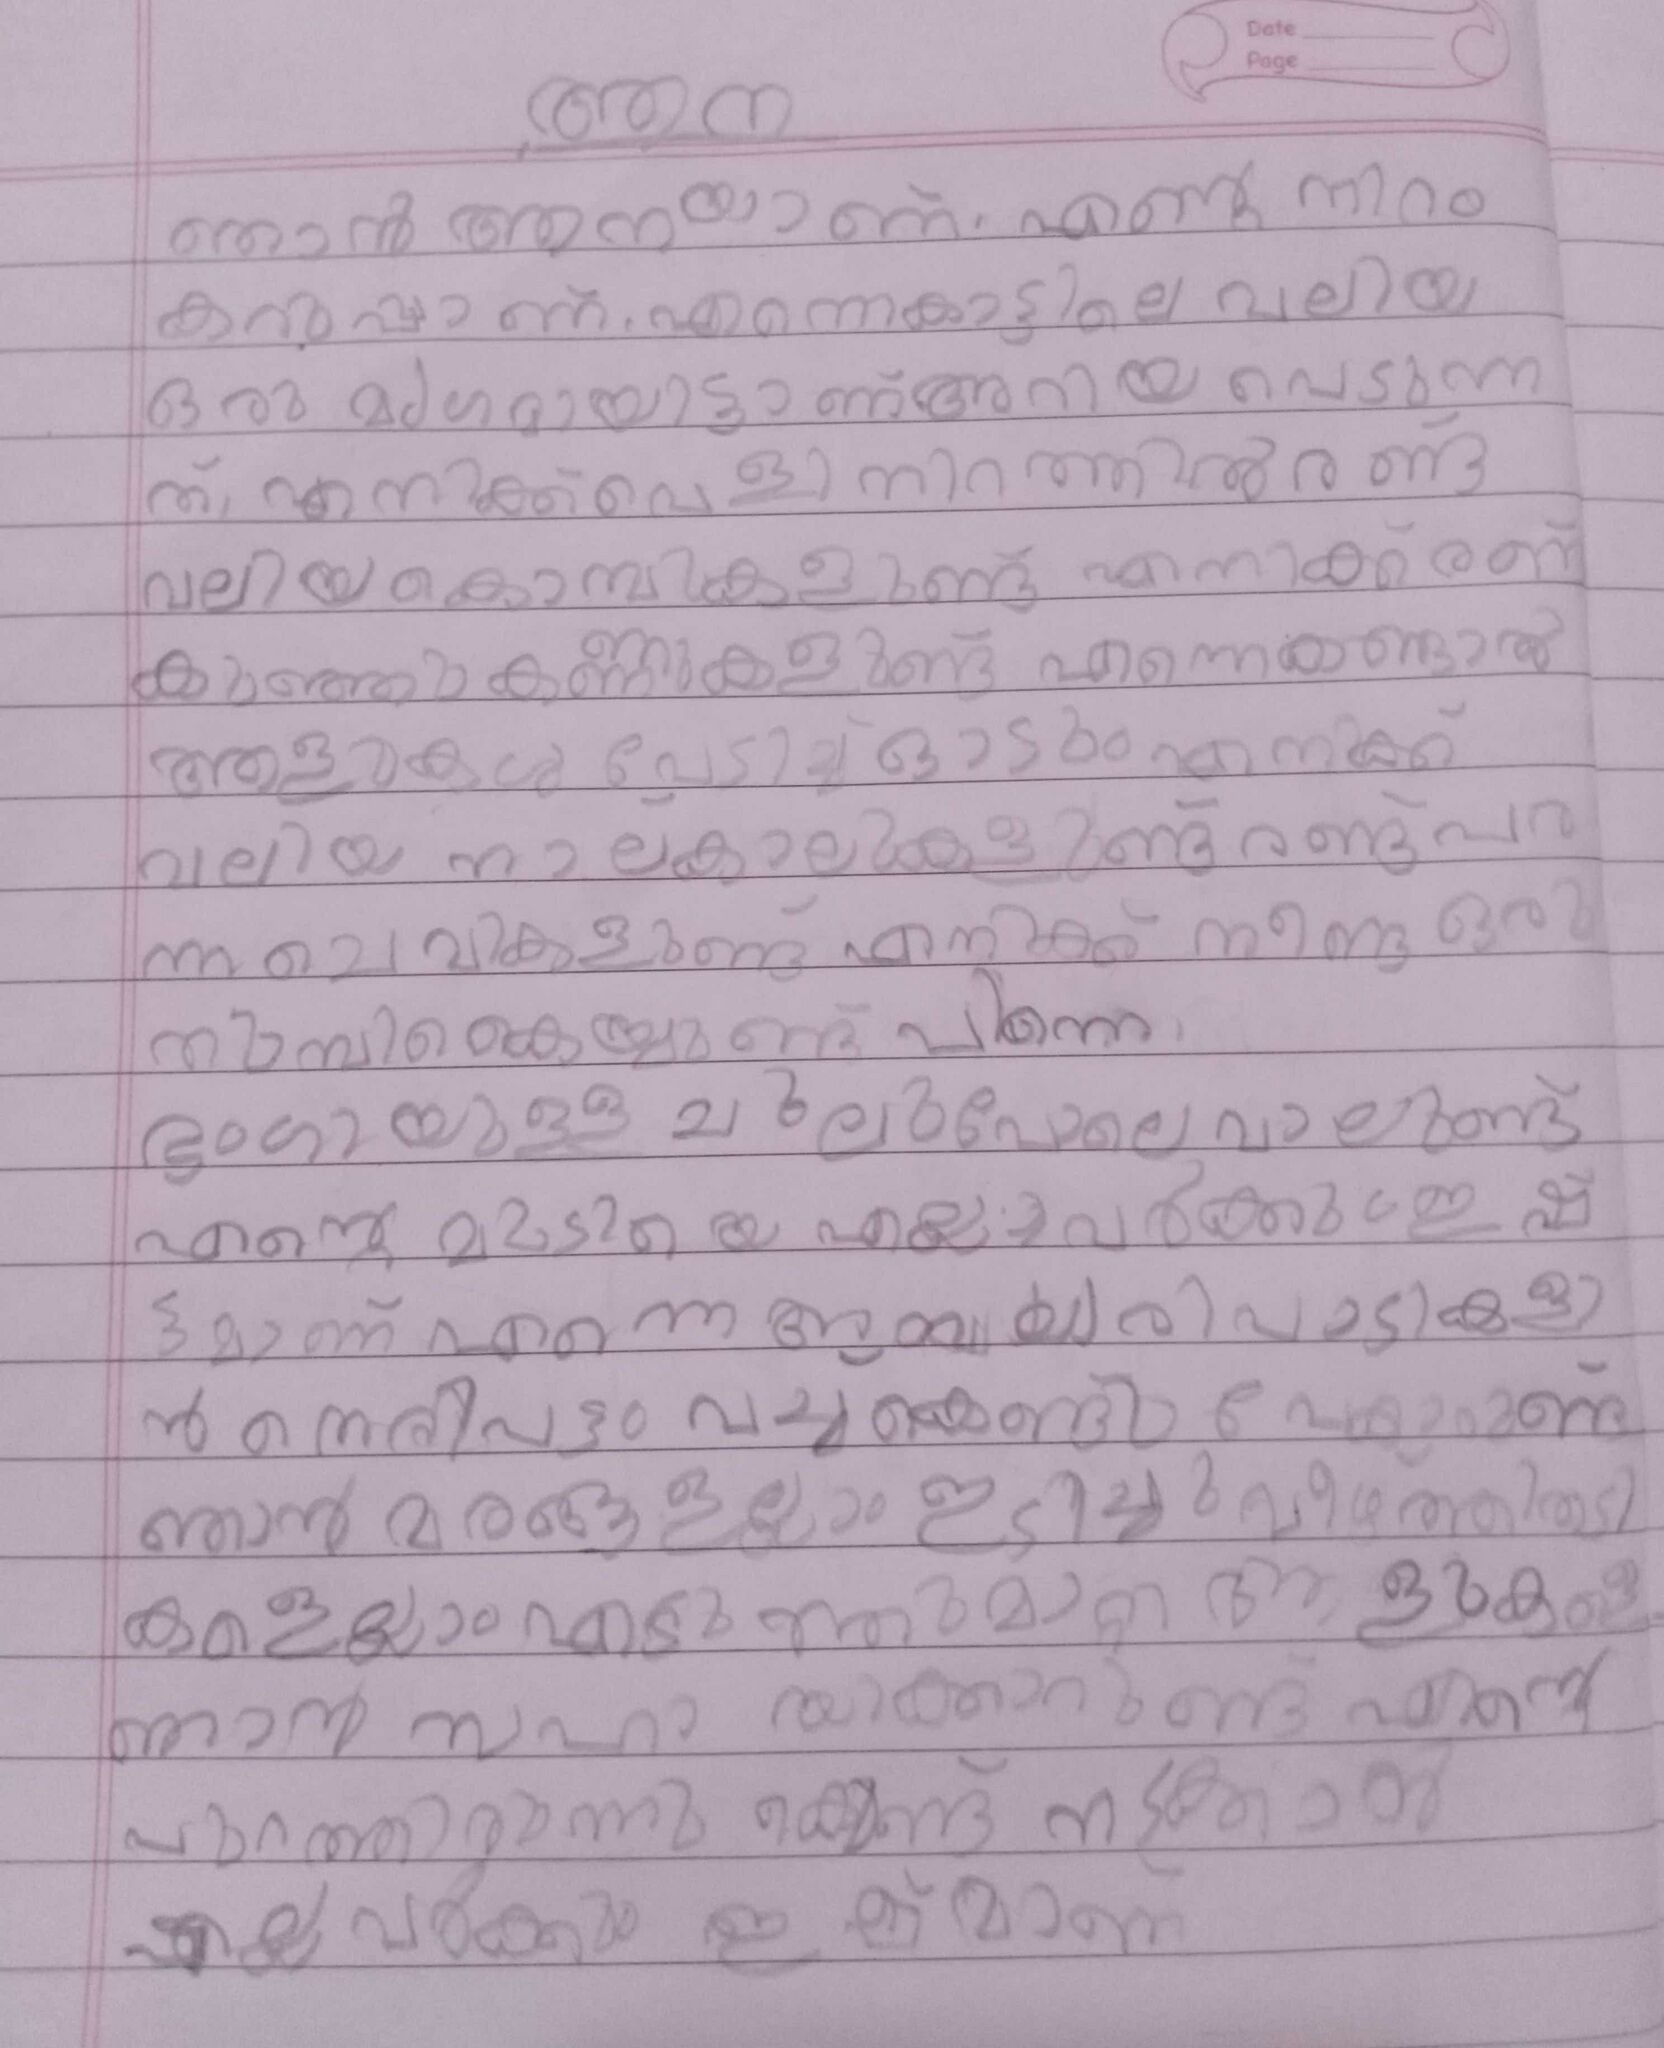 Date
Page
ആന
ഞാൻ ആനയാണ്. എന്റെ നിറം
കറുപ്പാണ്. എന്നെകാട്ടിലെ വലിയ
ഒരു മൃഗമായിട്ടാണ്അറിയപെടുന്ന
ത്, എനിക്ക്വെളിനിറത്തിൽരണ്ട്
വലിയ കൊമ്പുകളുണ്ട് എനിക്ക് രണ്ട്
കുഞ്ഞുകണ്ണുകളുണ്ട് എന്നെകണ്ടാൽ
ആളുകൾ പേടിച്ച്ഓടും എനിക്ക്
വലിയ നാല്കാലുകളുണ്ട് രണ്ട്പര
ന്ന ചെവികളുണ്ട് എനിക്ക് നീണ്ട ഒരു
തുമ്പികൈയുണ്ട് പിന്നെ
ഭംഗായുള്ള ചുലുപോലെവാലുണ്ട്
എന്റെ മുടിയെ എല്ലാവർക്കും ഇഷ്
ടമാണ് എന്നെ പരിപാടികളി
ൽ നെറ്റിപട്ടം വച്ചുകൊണ്ടു
ഞാൻ മരങ്ങളെല്ലാം ഇടിച്ചു വീഴ്ത്തിതടി
കളെല്ലാംഎടുത്തുമാറ്റി ആളുകളെ
ഞാൻ സഹായിക്കാറുണ്ട് എന്റെ
പുറത്തിരുന്നു കൊണ്ട് നടക്കാൻ
എല്ലവർക്കും ഇഷ്ടമാണ്